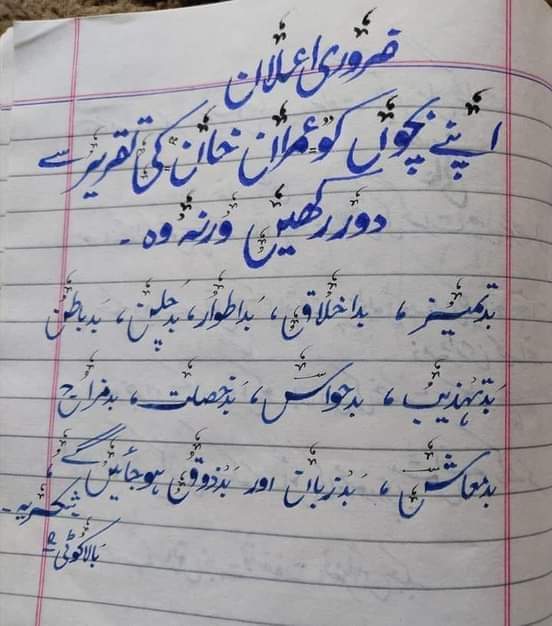 ضروری اعلان
اپنے بچوں کو عمران خان کی تقریر سے
دور رکھیں ورنہ وہ۔
بدتمیز، بداخلاق، بداطوار، بدچلن، بدباطن
بدتہذیب، بدحواس، بدخصلت، بدمزاج
بدمعاش، بدزبان اور بدذوق ہوجائیں گے،
شکریہ۔
بالاکوٹی